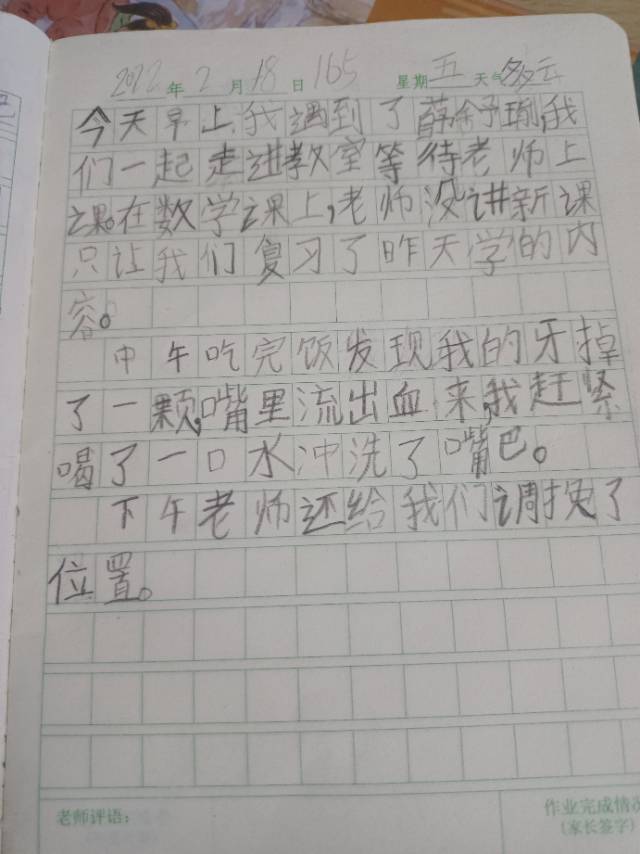 2022年2月18日 165 星期五 天气多云
今天早上,我遇到了薛舒瑜,我
们一起走进教室等待老师上
课。在数学课上,老师没讲新课
只让我们复习了昨天学的内
容。
中午吃完饭发现我的牙掉
了一颗,嘴里流出血来,我赶紧
喝了一口水冲洗了嘴巴。
下午老师还给我们调换了
位置。
老师评语: 作业完成情况
(家长签字)